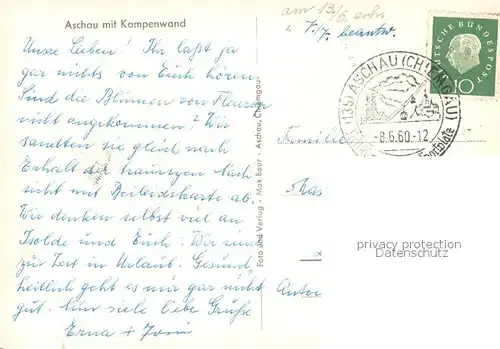 Aschau mit Kampenwand
Unsre Lieben! Ihr laßt ja
gar nichts von Euch hören.
Sind die Blumen von Fleurop
nicht angekommen? Wir
sandten sie gleich nach
Erhalt der traurigen Nach
richt mit Beileidskarte ab.
Wir denken selbst viel an
Isolde und Euch. Wir sind
zur Zeit in Urlaub. Gesund
heitlich geht es mir gar nicht
gut. Nun viele liebe Grüße
Erna +
Foto und Verlag - Max Baur - Aschau, Chiemgau
am 13/6
7/7. beantw.
DEUTSCHE BUNDESPOST
10
(13b) ASCHAU (CHIEMGAU)
-8.6.60-12
Familie
Anton
privacy protection
Datenschutz